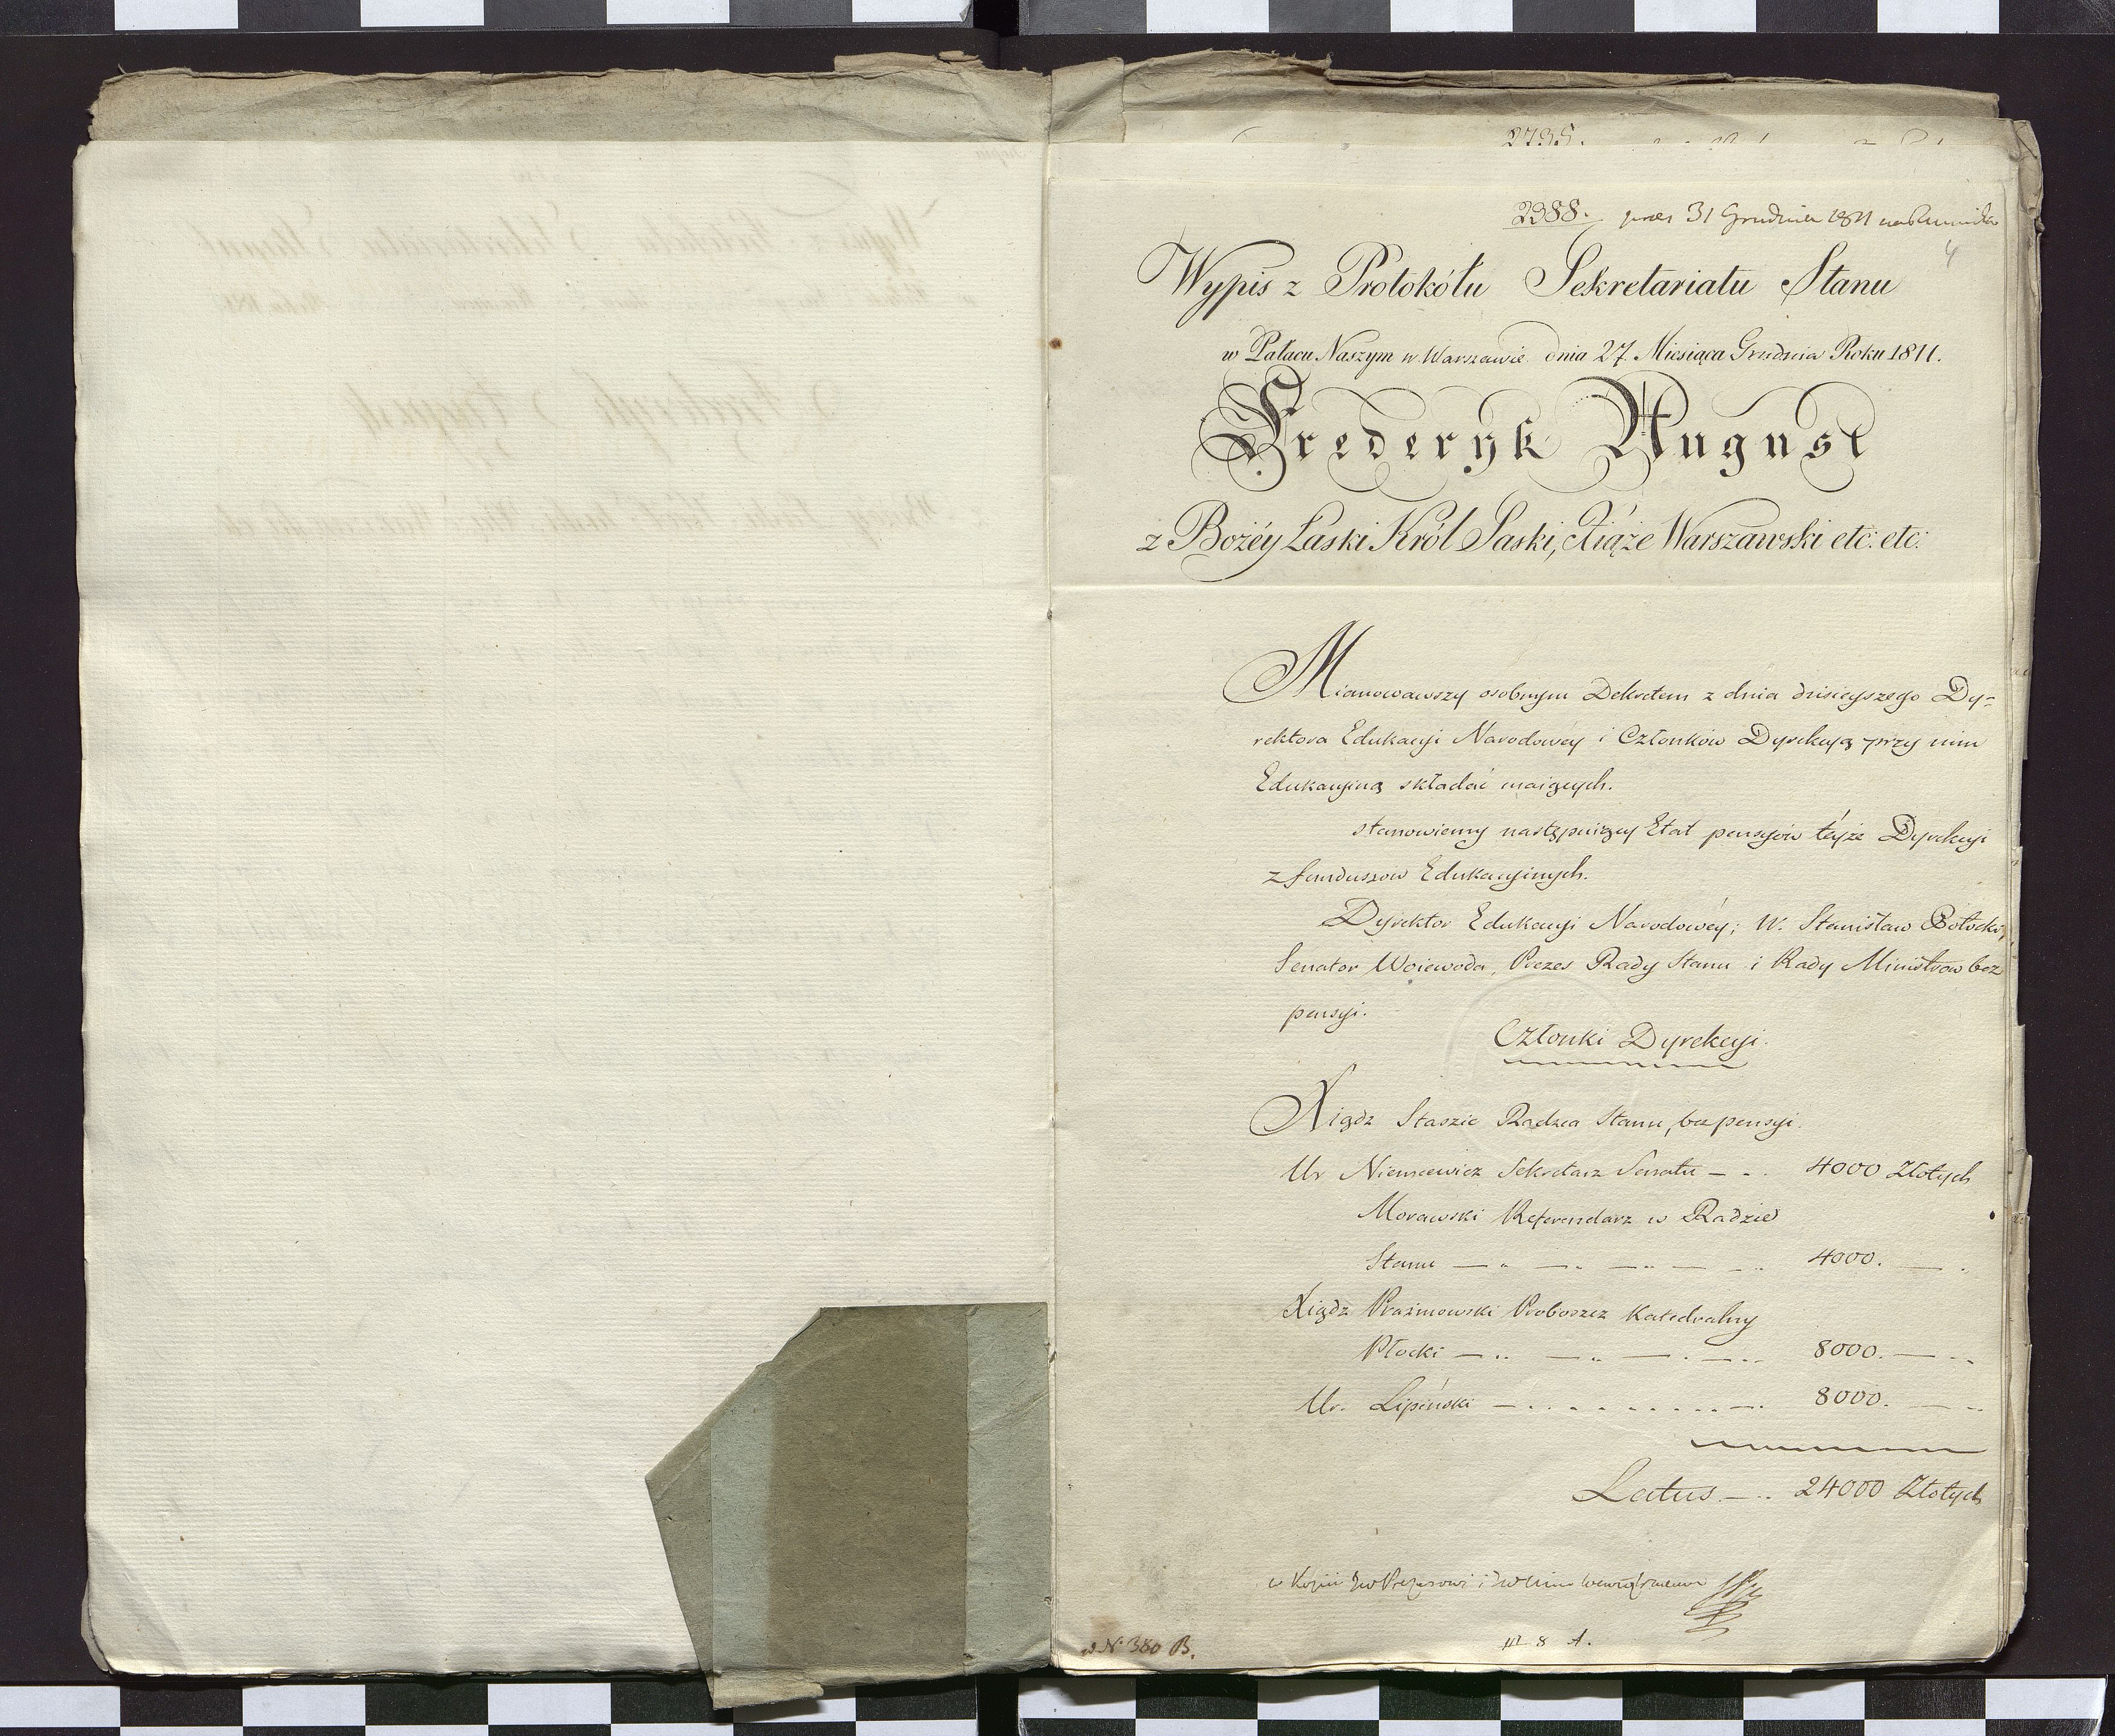 2735.
2388. prez 31 Grudnia 1811
4
Wypis z Protokółu Sekretariatu Stanu
w Pałacu Naszym w Warszawie dnia 27. Miesiąca Grudnia Roku 1811.
Frederyk August
z Bożéy Łaski Król Saski, Xiąże Warszawski etc: etc:
Mianowawszy osobnym Dekretem z dnia dzisieyszego Dy=
rektora Edukacyi Narodowéy i Członków Dyrekcyą przy nim
Edukacyiną składać maiących.
stanowiemy następuiący Etat pensyów téyże Dyrekcyi
z funduszow Edukacyinych.
Dyrektor Edukacyi Narodowéy; W. Stanisław Potocki,
Senator Woiewoda, Prezes Rady Stanu i Rady Ministrow bez
pensyi.
Członki Dyrekcyi.
Xiądz Staszic Radzca Stanu, bez pensyi.
Ur Niemcewicz Sekretarz Senatu — 4000 Złotych
Morawski Referendarz w Radzie
Stanu — 4000. —
Xiądz Prażmowski Proboszcz Katedralny
Płocki — 8000. —
Ur. Lipiński — 8000. —
Latus — 24000 Złotych
w Kopii
N. 380 B.
8 A.